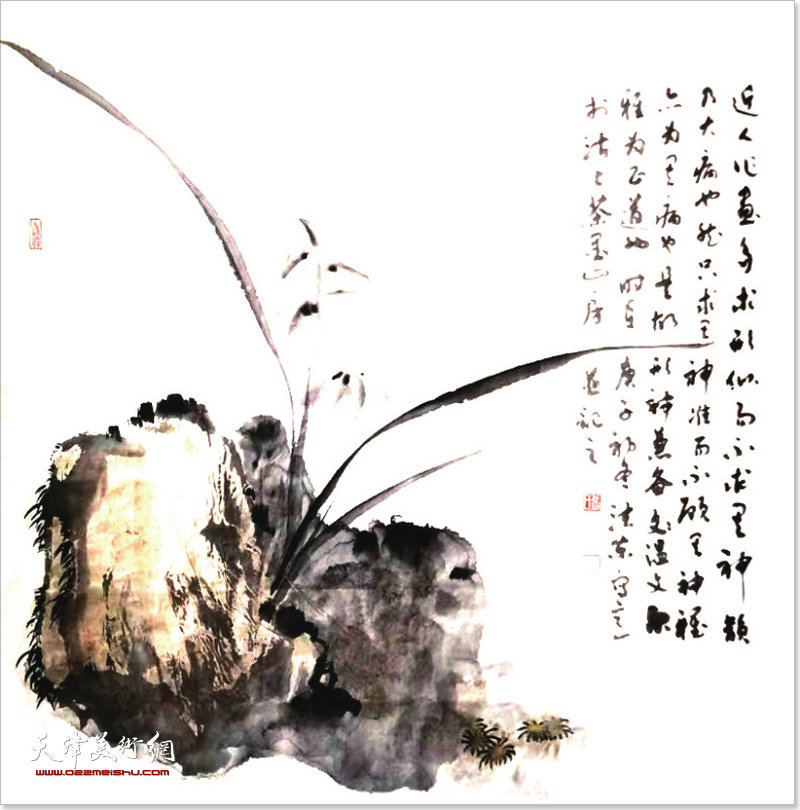 近人作画多求形似而不求其神韻
乃大病也然只求其神准而不顾其神
亦为其病也是故形神兼备文温文
雅为正道也时在庚子初冬法东写
於法上茶墨山房 并记之
天津美術網
www.022meishu.com